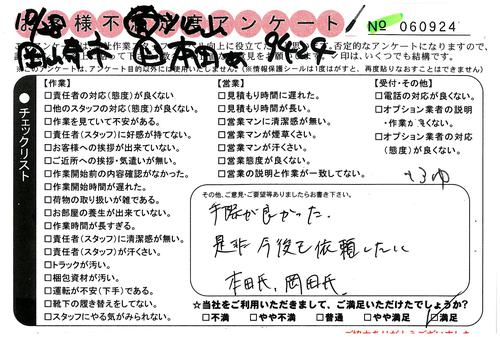 お客様不満足度アンケート
No 060924
※このアンケートは、アンケート目的以外には使用いたしません。(※情報保護シールは1度はがすと、再度貼りなおすことはできません)
チェックリスト
【作業】
□責任者の対応(態度)が良くない
□他のスタッフの対応(態度)が良くない。
□作業を見ていて不安がある。
□責任者(スタッフ)に好感が持てない。
□お客様への挨拶が出来ていない。
□ご近所への挨拶・気遣いが無い。
□作業開始前の内容確認がなかった。
□作業開始時間が遅れた。
□荷物の取り扱いが雑である。
□お部屋の養生が出来ていない。
□作業時間が長すぎる。
□責任者(スタッフ)に清潔感が無い。
□責任者(スタッフ)が汗くさい。
□トラックが汚い。
□梱包資材が汚い。
□運転が不安(下手)である。
□靴下の履き替えをしてない。
□スタッフにやる気がみられない。
【営業】
□見積もり時間に遅れた。
□見積もり時間が長い。
□営業マンに清潔感が無い。
□営業マンが煙草くさい。
□営業マンが汗くさい。
□営業態度が良くない。
□営業の説明と作業が一致してない。
【受付・その他】
□電話の対応が良くない。
□オプション業者の説明
・作業が良くない。
□オプション業者の対応
(態度)が良くない。
その他、ご意見・ご要望等ありましたらお書き下さい。
手際が良かった。
是非 今後も依頼したい
本田氏、岡田氏
☆当社をご利用いただきまして、ご満足いただけたでしょうか?
□不満 □やや不満 □普通 □やや満足 □満足